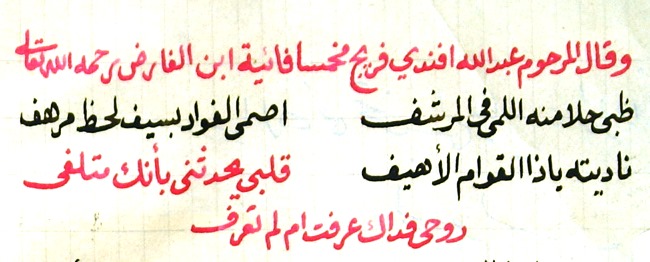 وقال المرحوم عبد الله افندي فريج مخمسا فائية ابن الفارض رحمه الله تعالى
ظبى حلا منه اللمى فى المرشف اصمى الفواد بسيف لحظ مرهف
ناديته ياذا القوام الأهيف قلبي يحدثنى بأنك متلفى
روحى فداك عرفت ام لم تعرف